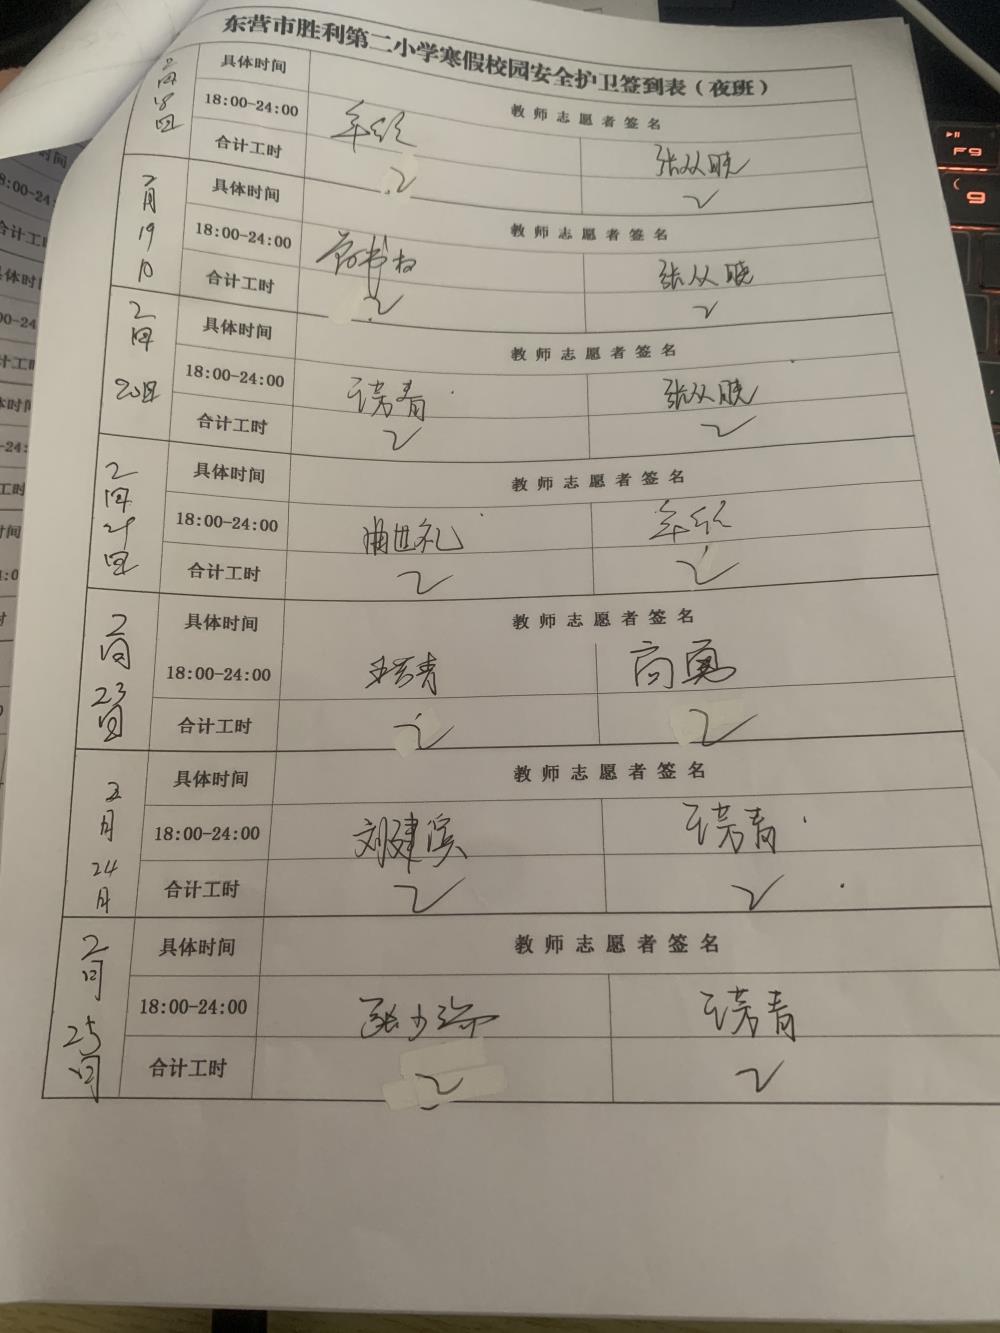 东营市胜利第二小学寒假校园安全护卫签到表（夜班）
2月18日
具体时间
教师志愿者签名
18:00-24:00
张从晓
合计工时
2
2
2月19日
具体时间
教师志愿者签名
18:00-24:00
张从晓
合计工时
2
2
2月20日
具体时间
教师志愿者签名
18:00-24:00
张从晓
合计工时
2
2
2月21日
具体时间
教师志愿者签名
18:00-24:00
曲世礼
合计工时
2
2
2月23日
具体时间
教师志愿者签名
18:00-24:00
高勇
合计工时
2
2
2月24日
具体时间
教师志愿者签名
18:00-24:00
刘建滨
合计工时
2
2
2月25日
具体时间
教师志愿者签名
18:00-24:00
合计工时
2
2
F9
9